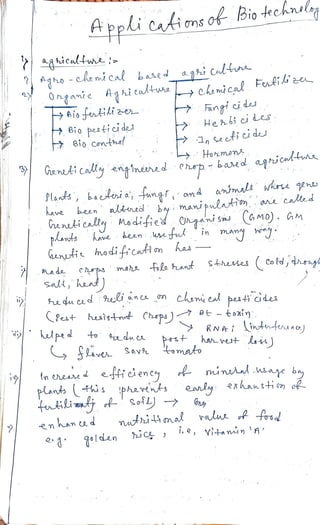 Applications of Biotechnology
i) agriculture :-
1) Agro-chemical based agriculture
2) Organic Agriculture → Chemical Fertilizer
→ Bio fertilizer → Fungicides
→ Bio pesticides → Herbicides
→ Bio control → Insecticides
→ Hormons
3) Genetically engineered crop-based agriculture
Plants, bacteria, fungi, and animals whose genes
have been altered by manipulation are called
Genetically Modified Organisms (GMO). GM
plants have been useful in many way.
Genetic modification has —
i) made crops more tolerant stresses (cold, drought
salt, heat)
ii) reduced reliance on chemical pesticides
(Pest resistant crops) → Bt-toxin
→ RNAi (intruference)
iii) helped to reduce post harvest loss)
↳ flaver savr tomato
iv) Increased efficiency of mineral usage by
plants (this prevents early exhaustion of
fertility of soil) →
v) enhanced nutritional value of food
e.g. golden rice, i.e, Vitamin 'A'